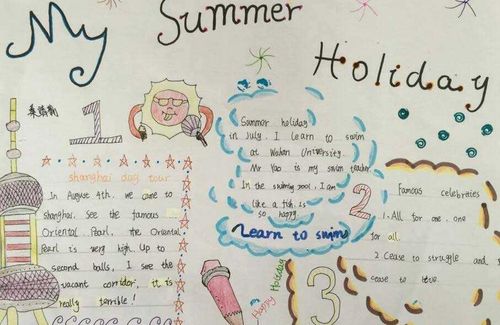 My Summer
Holiday
1
shanghai day tour
In August 4th, we came to
shanghai. See the famous
Oriental Pearl, the Oriental
Pearl is very high. Up to
second balls, I see the
vacant corridor, it is
really terrible!
Summer holiday
in July. I learn to swim
at Wuhan University.
Mr Yao is my swim teacher
In the swimming pool, I am
like a fish. is
so happy.
Learn to swim
2
Famous celebraties
1. All for one, one
for all.
2 Cease to struggle and
cease to live.
3
Happy
Holiday